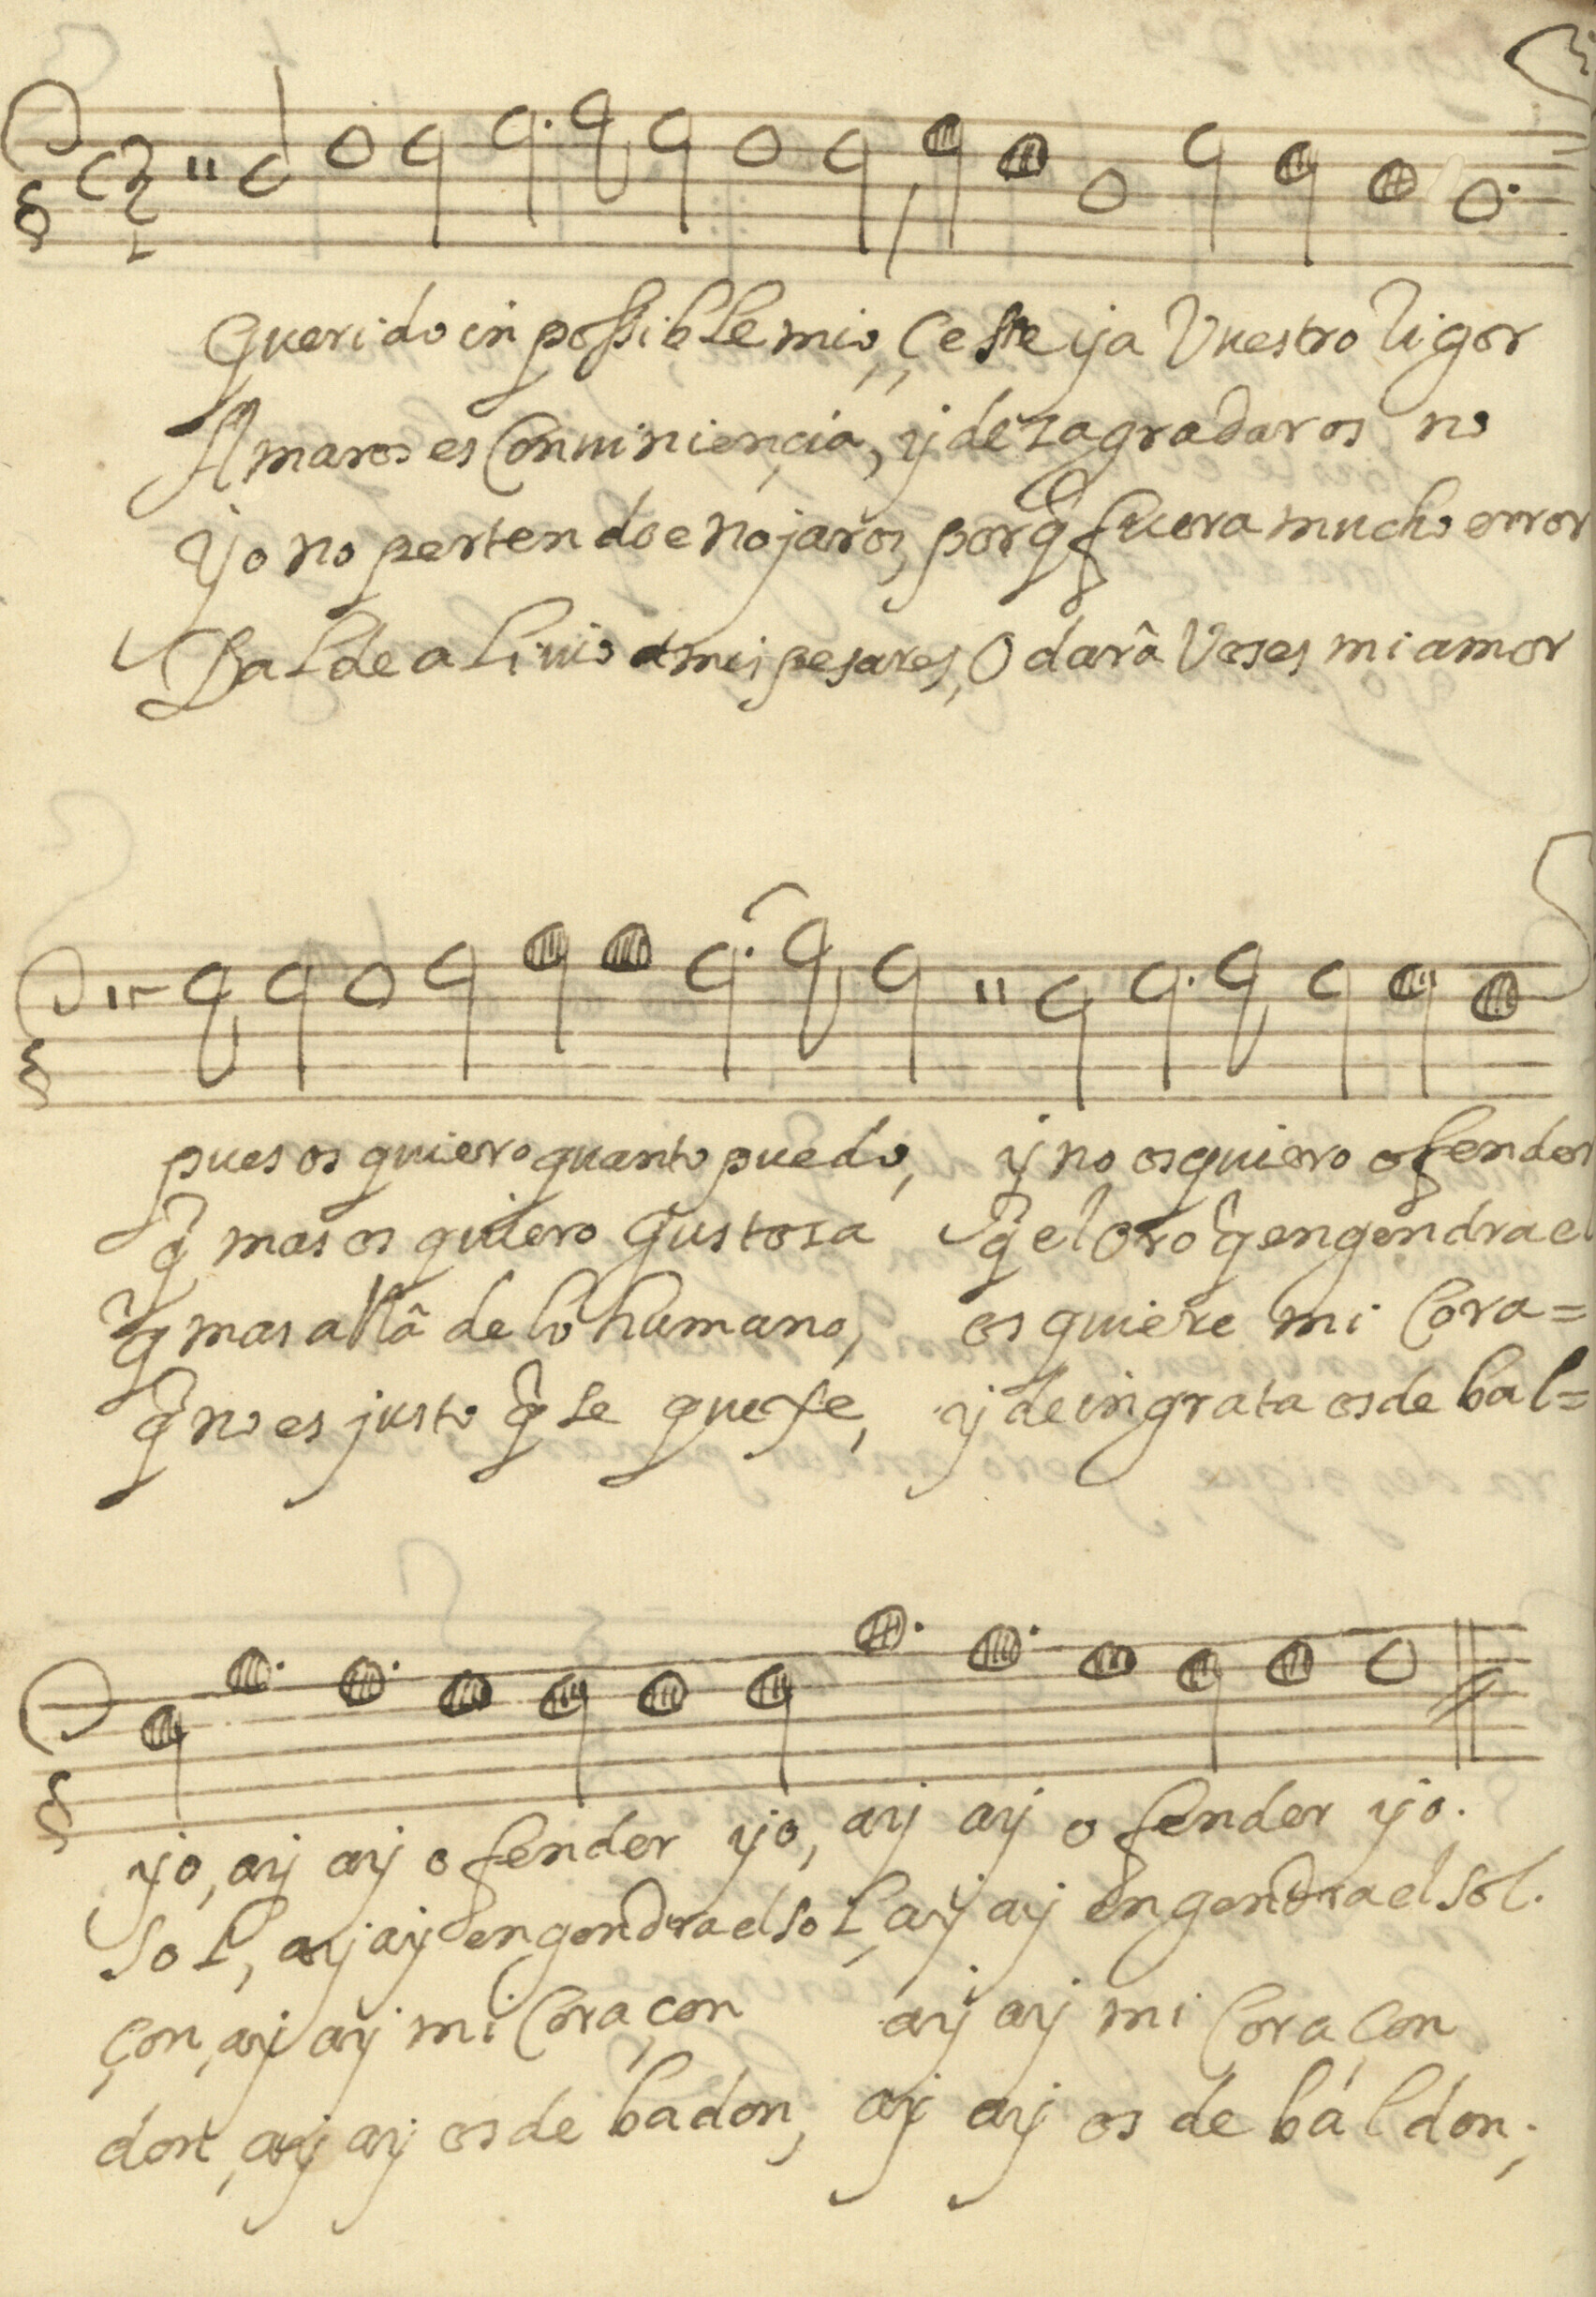 Querido inpossible mio, Cesse ya Vuestro Rigor
Amaros es Conuiniençia, y dezagradaros no
Yo no pertendo enojaros, porq̃ fuera mucho error
Dalde aliuio a mis pesares, O darâ Voses mi amor
pues os quiero quanto puedo, y no os quiero ofender
q̃ mas os quiero gustosa q̃ el oro q̃ engendra el
q̃ mas allâ de lo humano, os quiere mi Cora=
q̃ no es justo q̃ se quexe, y de ingrata os de bal=
yo, ay ay ofender yo, ay ay ofender yo.
Sol, ay ay engendra el sol, ay ay engendra el sol.
çon, ay ay mi Coraçon ay ay mi Coraçon
don, ay ay os de badon, ay ay os de báldon;